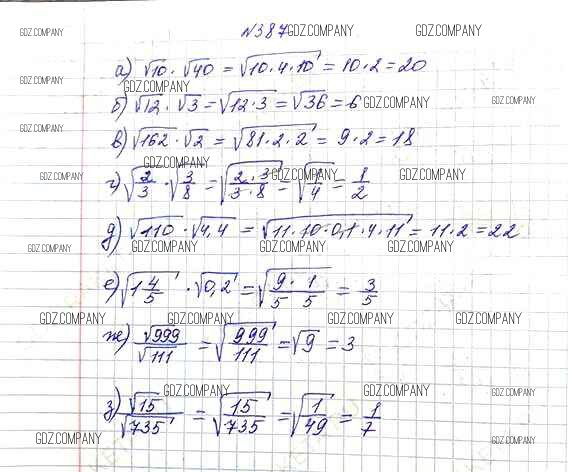 №387 GDZ.COMPANY GDZ.COMPANY
GDZ.COMPANY
а) √10 · √40 = √10·4·10 = 10·2 = 20
GDZ.COMPANY GDZ.COMPANY
б) √12 · √3 = √12·3 = √36 = 6 GDZ.COMPANY GDZ.COMPANY
GDZ.COMPANY
в) √162 · √2 = √81·2·2 = 9·2 = 18
GDZ.COMPANY
GDZ.COMPANY GDZ.COMPANY GDZ.COMPANY
г) √2/3 · √3/8 = √2·3/3·8 = √1/4 = 1/2
д) √110 · √4,4 = √11·10·0,1·4·11 = 11·2 = 22
GDZ.COMPANY GDZ.COMPANY GDZ.COMPANY GDZ.COMPANY
е) √1 4/5 · √0,2 = √9·1/5 5 = 3/5
GDZ.COMPANY GDZ.COMPANY GDZ.COMPANY GDZ.COMPANY
ж) √999/√111 = √999/111 = √9 = 3
GDZ.COMPANY GDZ.COMPANY GDZ.COMPANY
з) √15/√735 = √15/735 = √1/49 = 1/7
GDZ.COMPANY GDZ.COMPANY GDZ.COMPANY GDZ.COMPANY